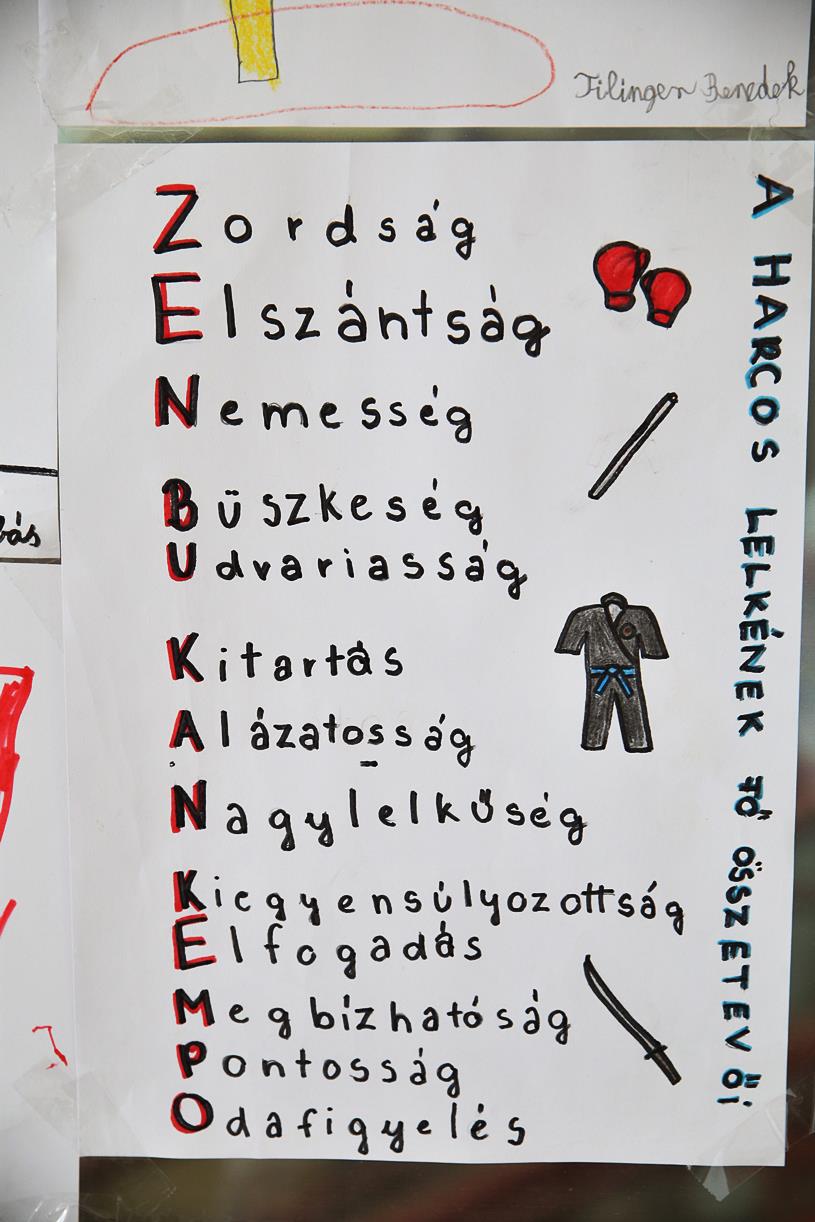 Tilinger Benedek
Zordság
Elszántság
Nemesség
Büszkeség
Udvariasság
Kitartás
Alázatosság
Nagylelkűség
Kiegyensúlyozottság
Elfogadás
Megbízhatóság
Pontosság
Odafigyelés
A HARCOS LELKÉNEK FŐ ÖSSZETEVŐi
bás